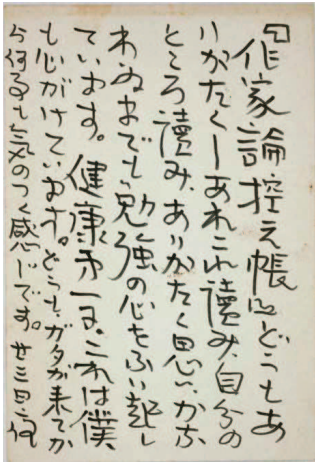 『作家論控え帳』どうもあ
りがたくーあれこれ讀み、自分の
ところ讀み、ありがたく思い、かな
わぬまでも勉強の心をふい起し
ています。健康才一。これは僕
も心がけています。どうも、ガタが来てか
ら何事も気のつく感じです。廿三日、何